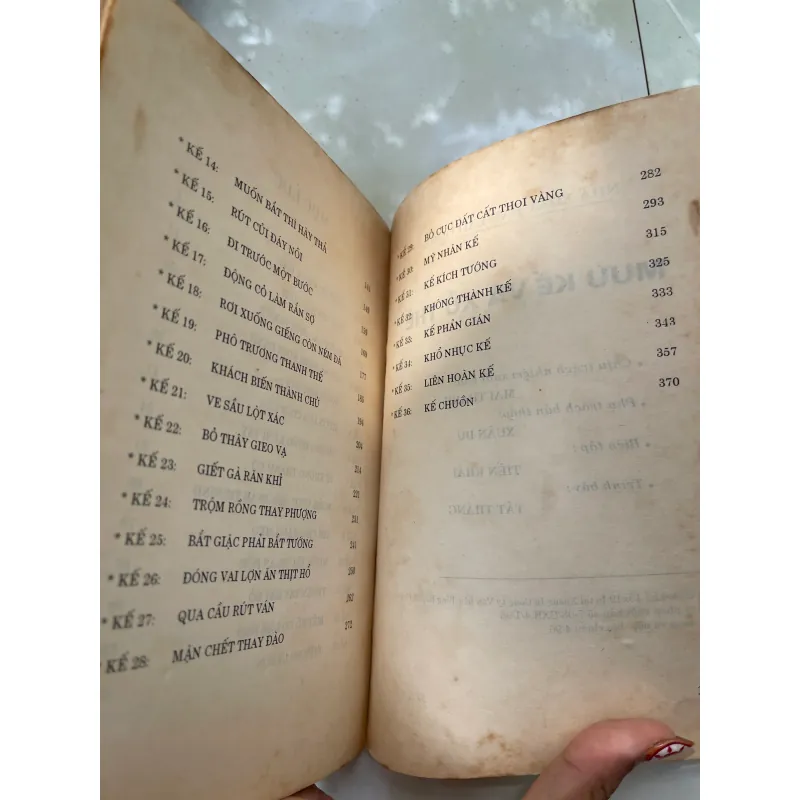 * KẾ 14: MUỐN BẮT THÌ HÃY THẢ
* KẾ 15: RÚT CỦI ĐÁY NỒI
* KẾ 16: ĐI TRƯỚC MỘT BƯỚC
* KẾ 17: ĐỘNG CỎ LÀM RẮN SỢ
* KẾ 18: RƠI XUỐNG GIẾNG CÒN NÉM ĐÁ
* KẾ 19: PHÔ TRƯƠNG THANH THẾ
* KẾ 20: KHÁCH BIẾN THÀNH CHỦ
* KẾ 21: VE SẦU LỘT XÁC
* KẾ 22: BỎ THÂY GIEO VẠ 204
* KẾ 23: GIẾT GÀ RĂN KHỈ 214
* KẾ 24: TRỘM RỒNG THAY PHƯỢNG 231
* KẾ 25: BẮT GIẶC PHẢI BẮT TƯỚNG 241
* KẾ 26: ĐÓNG VAI LỢN ĂN THỊT HỔ
* KẾ 27: QUA CẦU RÚT VÁN 262
* KẾ 28: MẬN CHẾT THAY ĐÀO 272
* KẾ 29: BỎ CỤC ĐẤT CẤT THOI VÀNG 282
* KẾ 30: MỸ NHÂN KẾ 293
* KẾ 31: KẾ KÍCH TƯỚNG 315
* KẾ 32: KHÔNG THÀNH KẾ 325
* KẾ 33: KẾ PHẢN GIÁN 333
* KẾ 34: KHỔ NHỤC KẾ 343
* KẾ 35: LIÊN HOÀN KẾ 357
* KẾ 36: KẾ CHUỒN 370